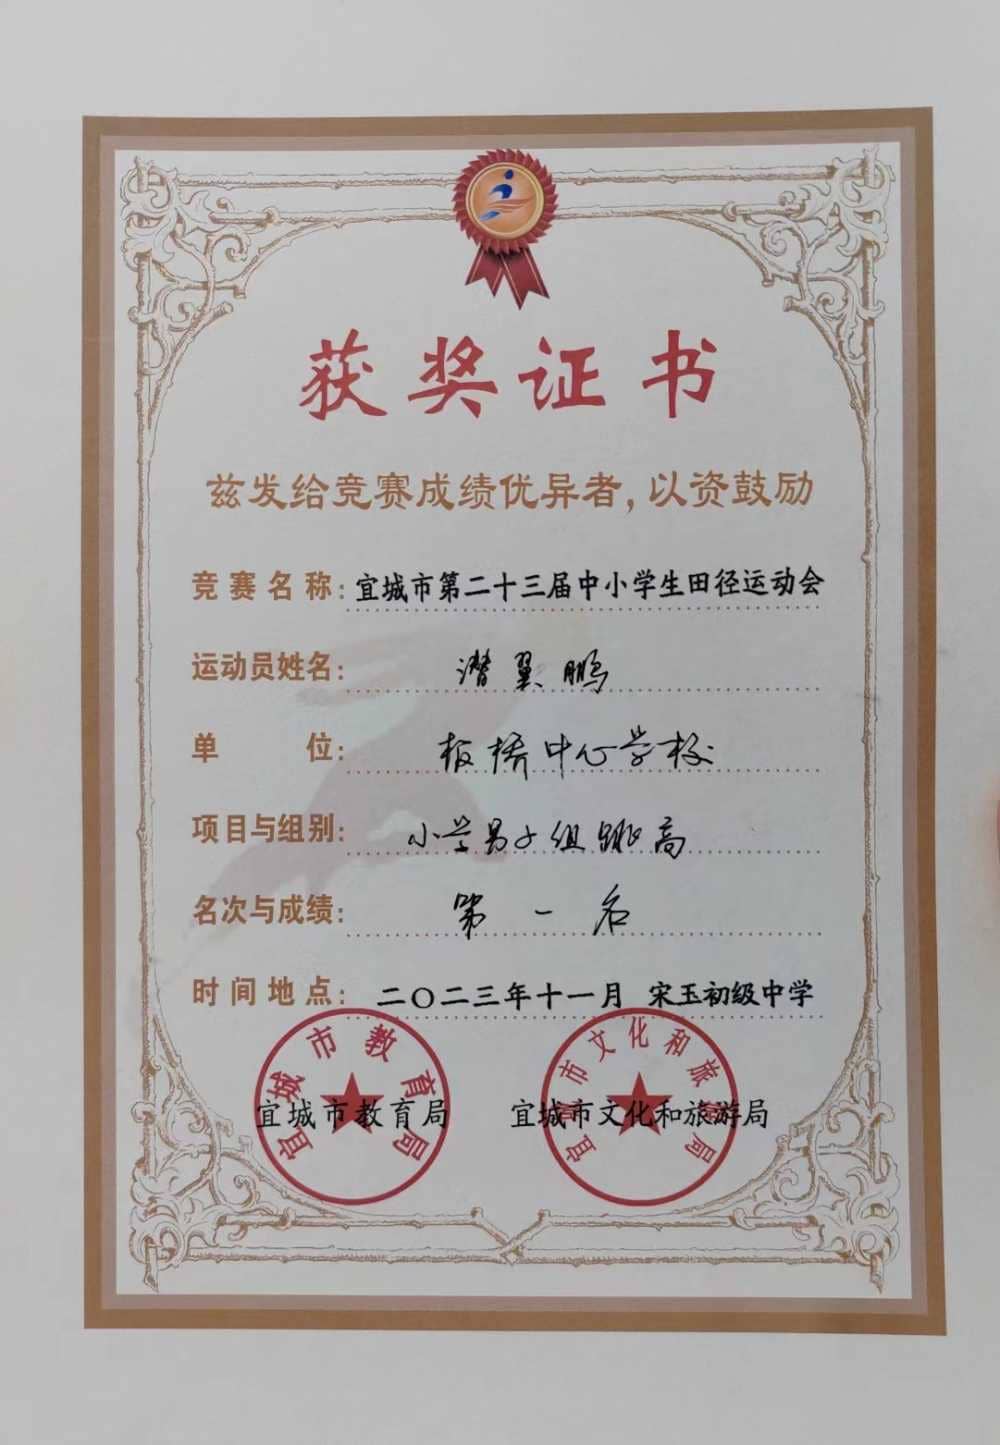 获奖证书
兹发给竞赛成绩优异者，以资鼓励
竞赛名称：宜城市第二十三届中小学生田径运动会
运动员姓名：潜翼鹏
单位：板桥中心学校
项目与组别：小学男子组跳高
名次与成绩：第一名
时间地点：二〇二三年十一月 宋玉初级中学
宜城市教育局
宜城市教育局
宜城市文化和旅游局
宜城市文化和旅游局